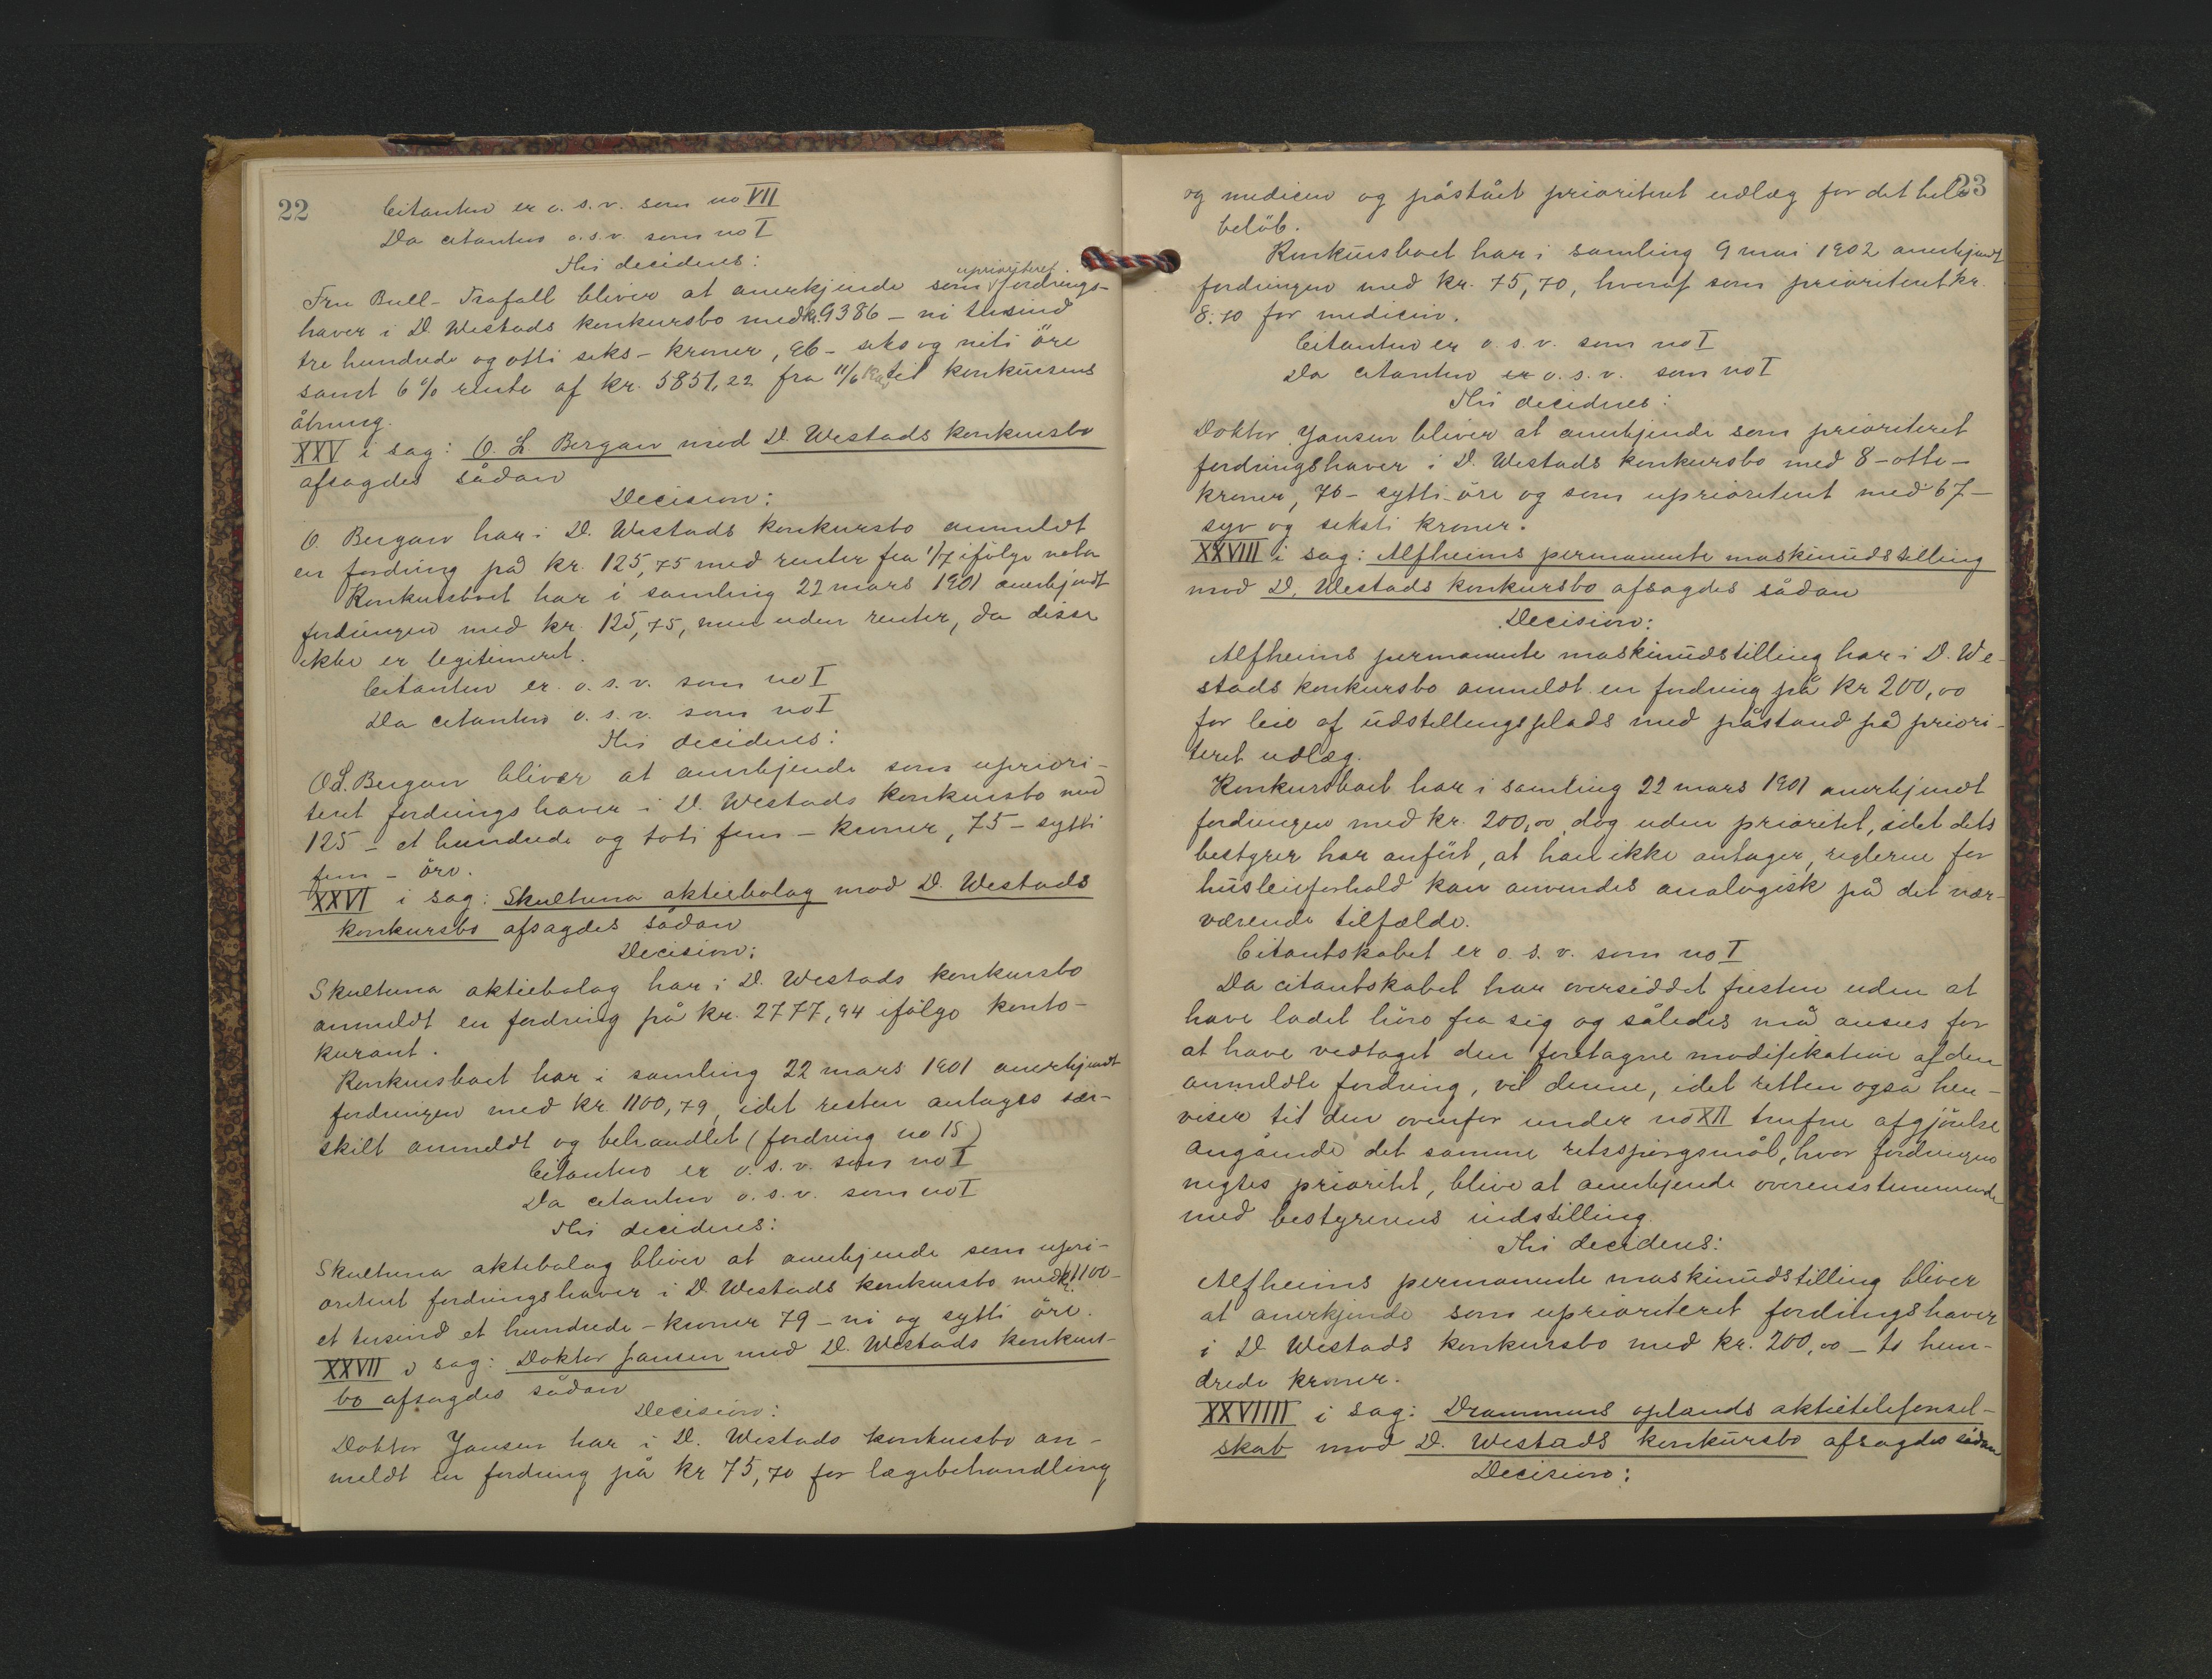 22
Citanten er o. s. v. som no VII
Da citanten o. s. v. som no I
Thi decideres:
upririteret
Fru Bull-Trafall bliver at anerkjende som fordrings-
haver i D. Westads konkursbo med kr. 9386 - ni tusind
tre hundrede og otti seks - kroner, 96 - seks og niti öre
samt 6 % rente af kr. 5851,22 fra 11/6 til konkursens
åbning.
XXV i sag: O. L. Bergan mod D. Westads konkursbo
afsagdes sådan
Decision:
O. Bergan har i D. Westads konkursbo anmeldt
en fordring på kr. 125,75 med renter fra 1/7 ifölge nota
Konkursboet har i samling 22 mars 1901 anerkjendt
fordringen med kr. 125,75, men uden renter, da disse
ikke er legitimeret.
Citanten er o. s. v. som no I
Da citanten o. s. v. som no I
Thi decideres:
O.L. Bergan bliver at anerkjende som upriori-
teret fordringshaver i D. Westads konkursbo med
125 - et hundrede og toti fem - kroner, 75 - sytti
fem - öre.
XXVI i sag: Skultuna aktiebolag mod D. Westads
konkursbo afsagdes sådan
Decision:
Skultuna aktiebolag har i D. Westads konkursbo
anmeldt en fordring på kr. 2777,94 ifölge konto-
kurant.
Konkursboet har i samling 22 mars 1901 anerkjendt
fordringen med kr. 1100,79, idet resten antages sær-
skilt anmeldt og behandlet (fordring no 15)
Citanten er o. s. v. som no I
Da citanten o. s. v. som no I
Thi decideres:
Skultuna aktiebolag bliver at anerkjende som upri-
oriteret fordringshaver i D. Westads konkursbo med kr. 1100 -
et tusind et hundrede - kroner 79 - ni og sytti öre.
XXVII i sag: Doktor Jansen mod D. Westads konkurs-
bo afsagdes sådan
Decision:
Doktor Jansen har i D. Westads konkursbo an-
meldt en fordring på kr 75,70 for lægebehandling
23
og medicin og påstået prioriteret udlæg for det hele
belöb.
Konkursboet har i samling 9 mai 1902 anerkjendt
fordringen med kr. 75,70, hvoraf som prioriteret kr.
8.70 for medicin.
Citanten er o. s. v. som no I
Da citanten er o. s. v. som no I
Thi decideres:
Doktor Jansen bliver at anerkjende som prioriteret
fordringshaver i D. Westads konkursbo med 8 - otte -
kroner, 70 - sytti - öre og som uprioriteret med 67 -
syv og seksti kroner.
XXVIII i sag: Alfheims permanente maskinudstilling
mod D. Westads konkursbo afsagdes sådan
Decision:
Alfheims permanente maskinudstilling har i D. We-
stads konkursbo anmeldt en fordring på kr 200,00
for leie af udstillingsplads med påstand på priori-
teret udlæg.
Konkursboet har i samling 22 mars 1901 anerkjendt
fordringen med kr. 200,00, dog uden prioritet, idet dets
bestyrer har anfört, at han ikke antager, reglerne for
husleieforhold kan anvendes analogisk på det nær-
værende tilfælde.
Citantskabet er o. s. v. som no I
Da citantskabet har oversiddet fristen uden at
have ladet höre fra sig og således må anses for
at have vedtaget den foretagne modifikation af den
anmeldte fordring, vil denne, idet retten også hen-
viser til den ovenfor under no XII trufne afgjörelse
angående det samme retsspörgsmål, hvor fordringen
negtes prioritet, blive at anerkjende overensstemmende
med bestyrerens indstilling.
Thi decideres:
Alfheims permanente maskinudstilling bliver
at anerkjende som uprioriteret fordringshaver
i D. Westads konkursbo med kr. 200,00 - to hun-
drede kroner.
XXVIIII i sag: Drammens oplands aktietelefonsel-
skab mod D. Westads konkursbo afsagdes sådan
Decision: